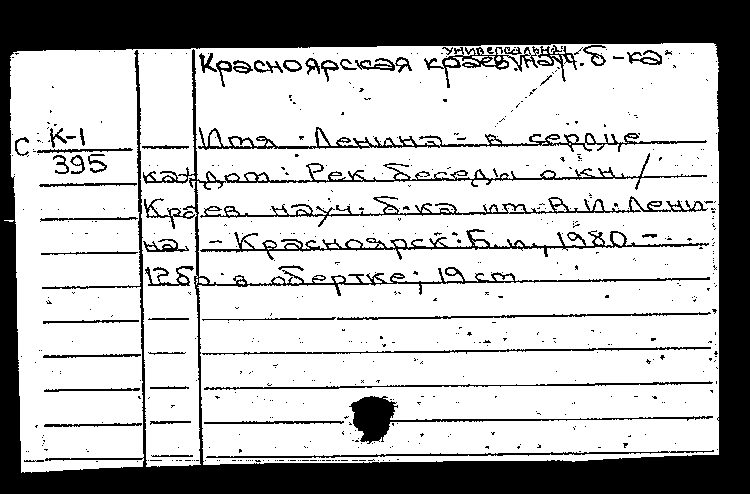 универсальная
Красноярская краев. науч. б-ка
С К-1
395
Имя Ленина - в сердце
каждом: Рек. беседы о кн. /
Краев. науч. б-ка им. В. И. Лени-
на. - Красноярск: Б. и., 1980. -
12 бр. в обертке; 19 см